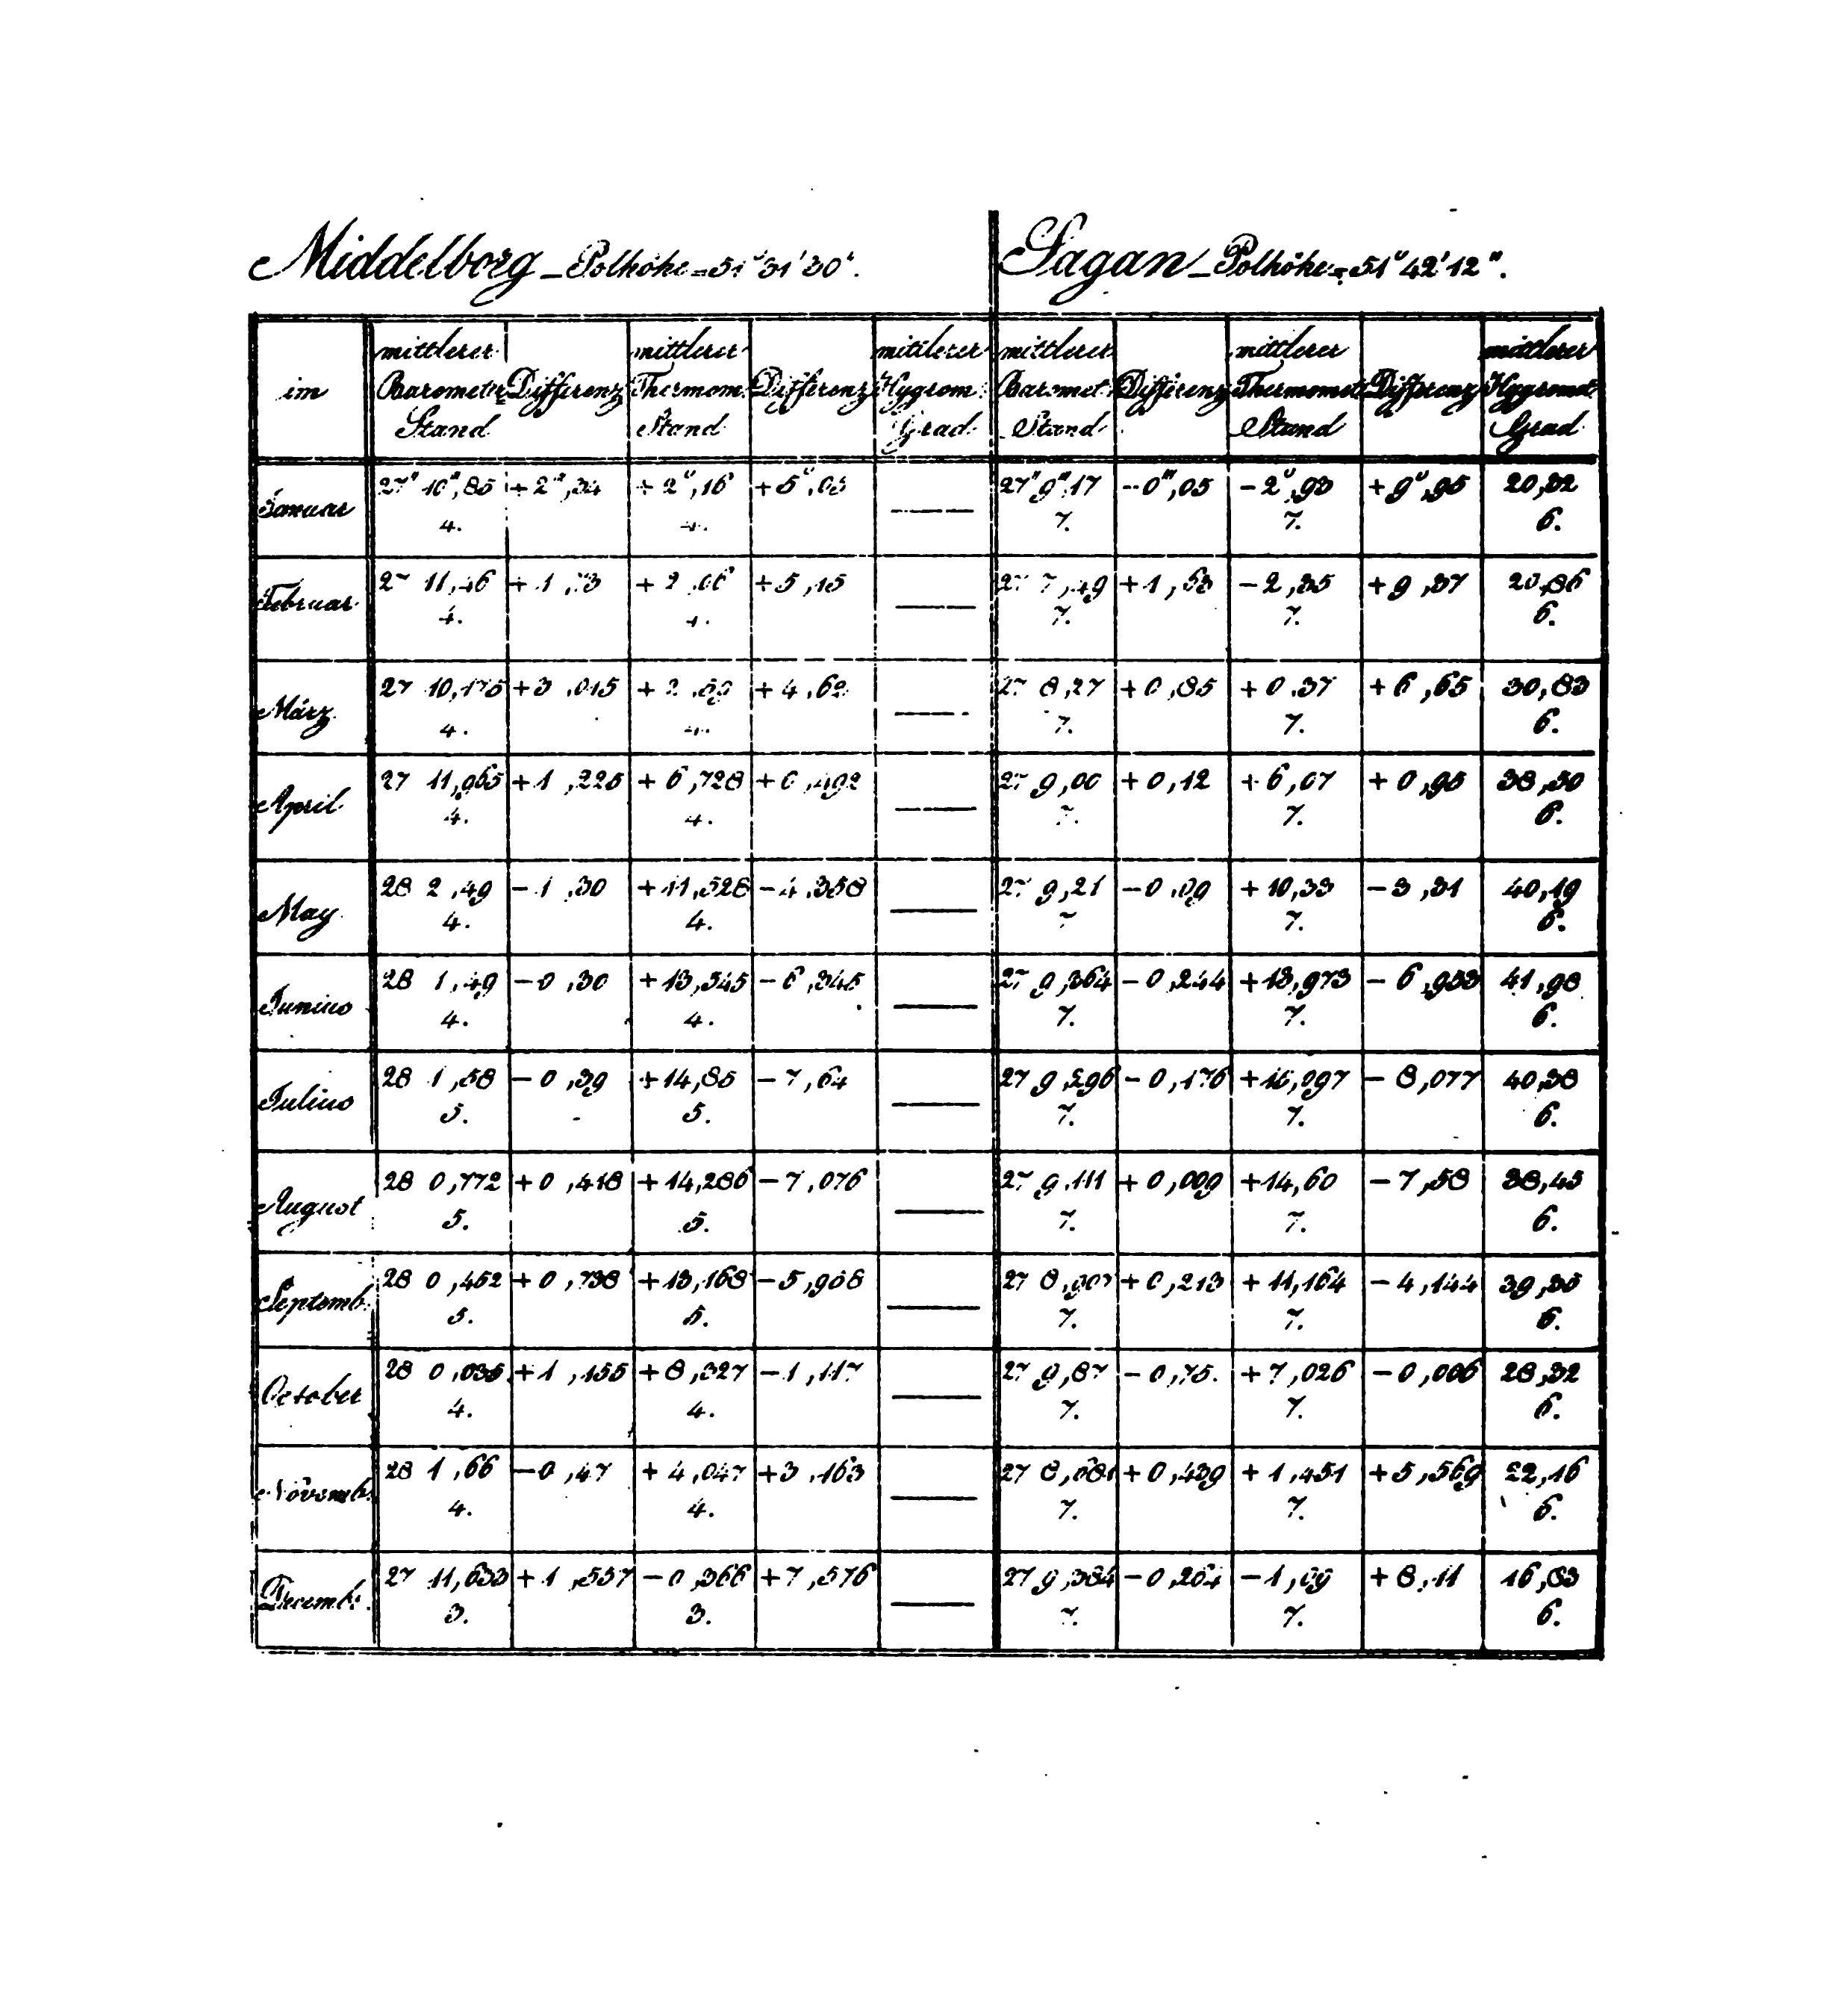 Middelborg – Polhöhe = 51° 31' 30".
Sagan – Polhöhe = 51° 42' 12".
im | mittlerer Barometer Stand | Differenz | mittlerer Thermom. Stand | Differenz | mittlerer Hygrom. Grad | mittlerer Baromet. Stand | Differenz | mittlerer Thermomet. Stand | Differenz | mittlerer Hygromet. Grad
Januar 27" 10''',85 +2''',34 +2°,16 +5°,05 — 27" 9''',17 -0''',05 -2°,93 +9°,95 20,32
4. 4. 7. 7. 6.
Februar 27 11,46 +1,73 +2,06 +5,15 — 27 7,49 +1,63 -2,35 +9,37 20,86
4. 4. 7. 7. 6.
März 27 10,175 +3,015 +2,59 +4,62 — 27 8,27 +0,85 +0,37 +6,65 30,83
4. 4. 7. 7. 6.
April 27 11,965 +1,225 +6,728 +0,492 — 27 9,00 +0,12 +6,07 +0,95 38,30
4. 4. 7. 7. 6.
May 28 2,49 -1,30 +11,528 -4,358 — 27 9,21 -0,09 +10,33 -3,31 40,19
4. 4. 7 7. 6.
Junius 28 1,49 -0,30 +13,545 -6,345 — 27 9,364 -0,244 +13,973 -6,953 41,98
4. 4. 7. 7. 6.
Julius 28 1,58 -0,39 +14,85 -7,64 — 27 9,296 -0,176 +15,097 -8,077 40,38
5. 5. 7. 7. 6.
August 28 0,772 +0,418 +14,286 -7,076 — 27 9,111 +0,009 +14,60 -7,58 38,45
5. 5. 7. 7. 6.
Septemb. 28 0,452 +0,738 +13,168 -5,958 — 27 8,907 +0,213 +11,164 -4,144 39,35
5. 5. 7. 7. 6.
October 28 0,035 +1,155 +8,327 -1,117 — 27 9,87 -0,75. +7,026 -0,006 28,32
4. 4. 7. 7. 6.
Novemb. 28 1,66 -0,47 +4,047 +3,163 — 27 8,681 +0,439 +1,451 +5,569 22,16
4. 4. 7. 7. 6.
Decemb. 27 11,633 +1,557 -0,366 +7,576 — 27 9,384 -0,264 -1,09 +8,11 16,83
3. 3. 7. 7. 6.